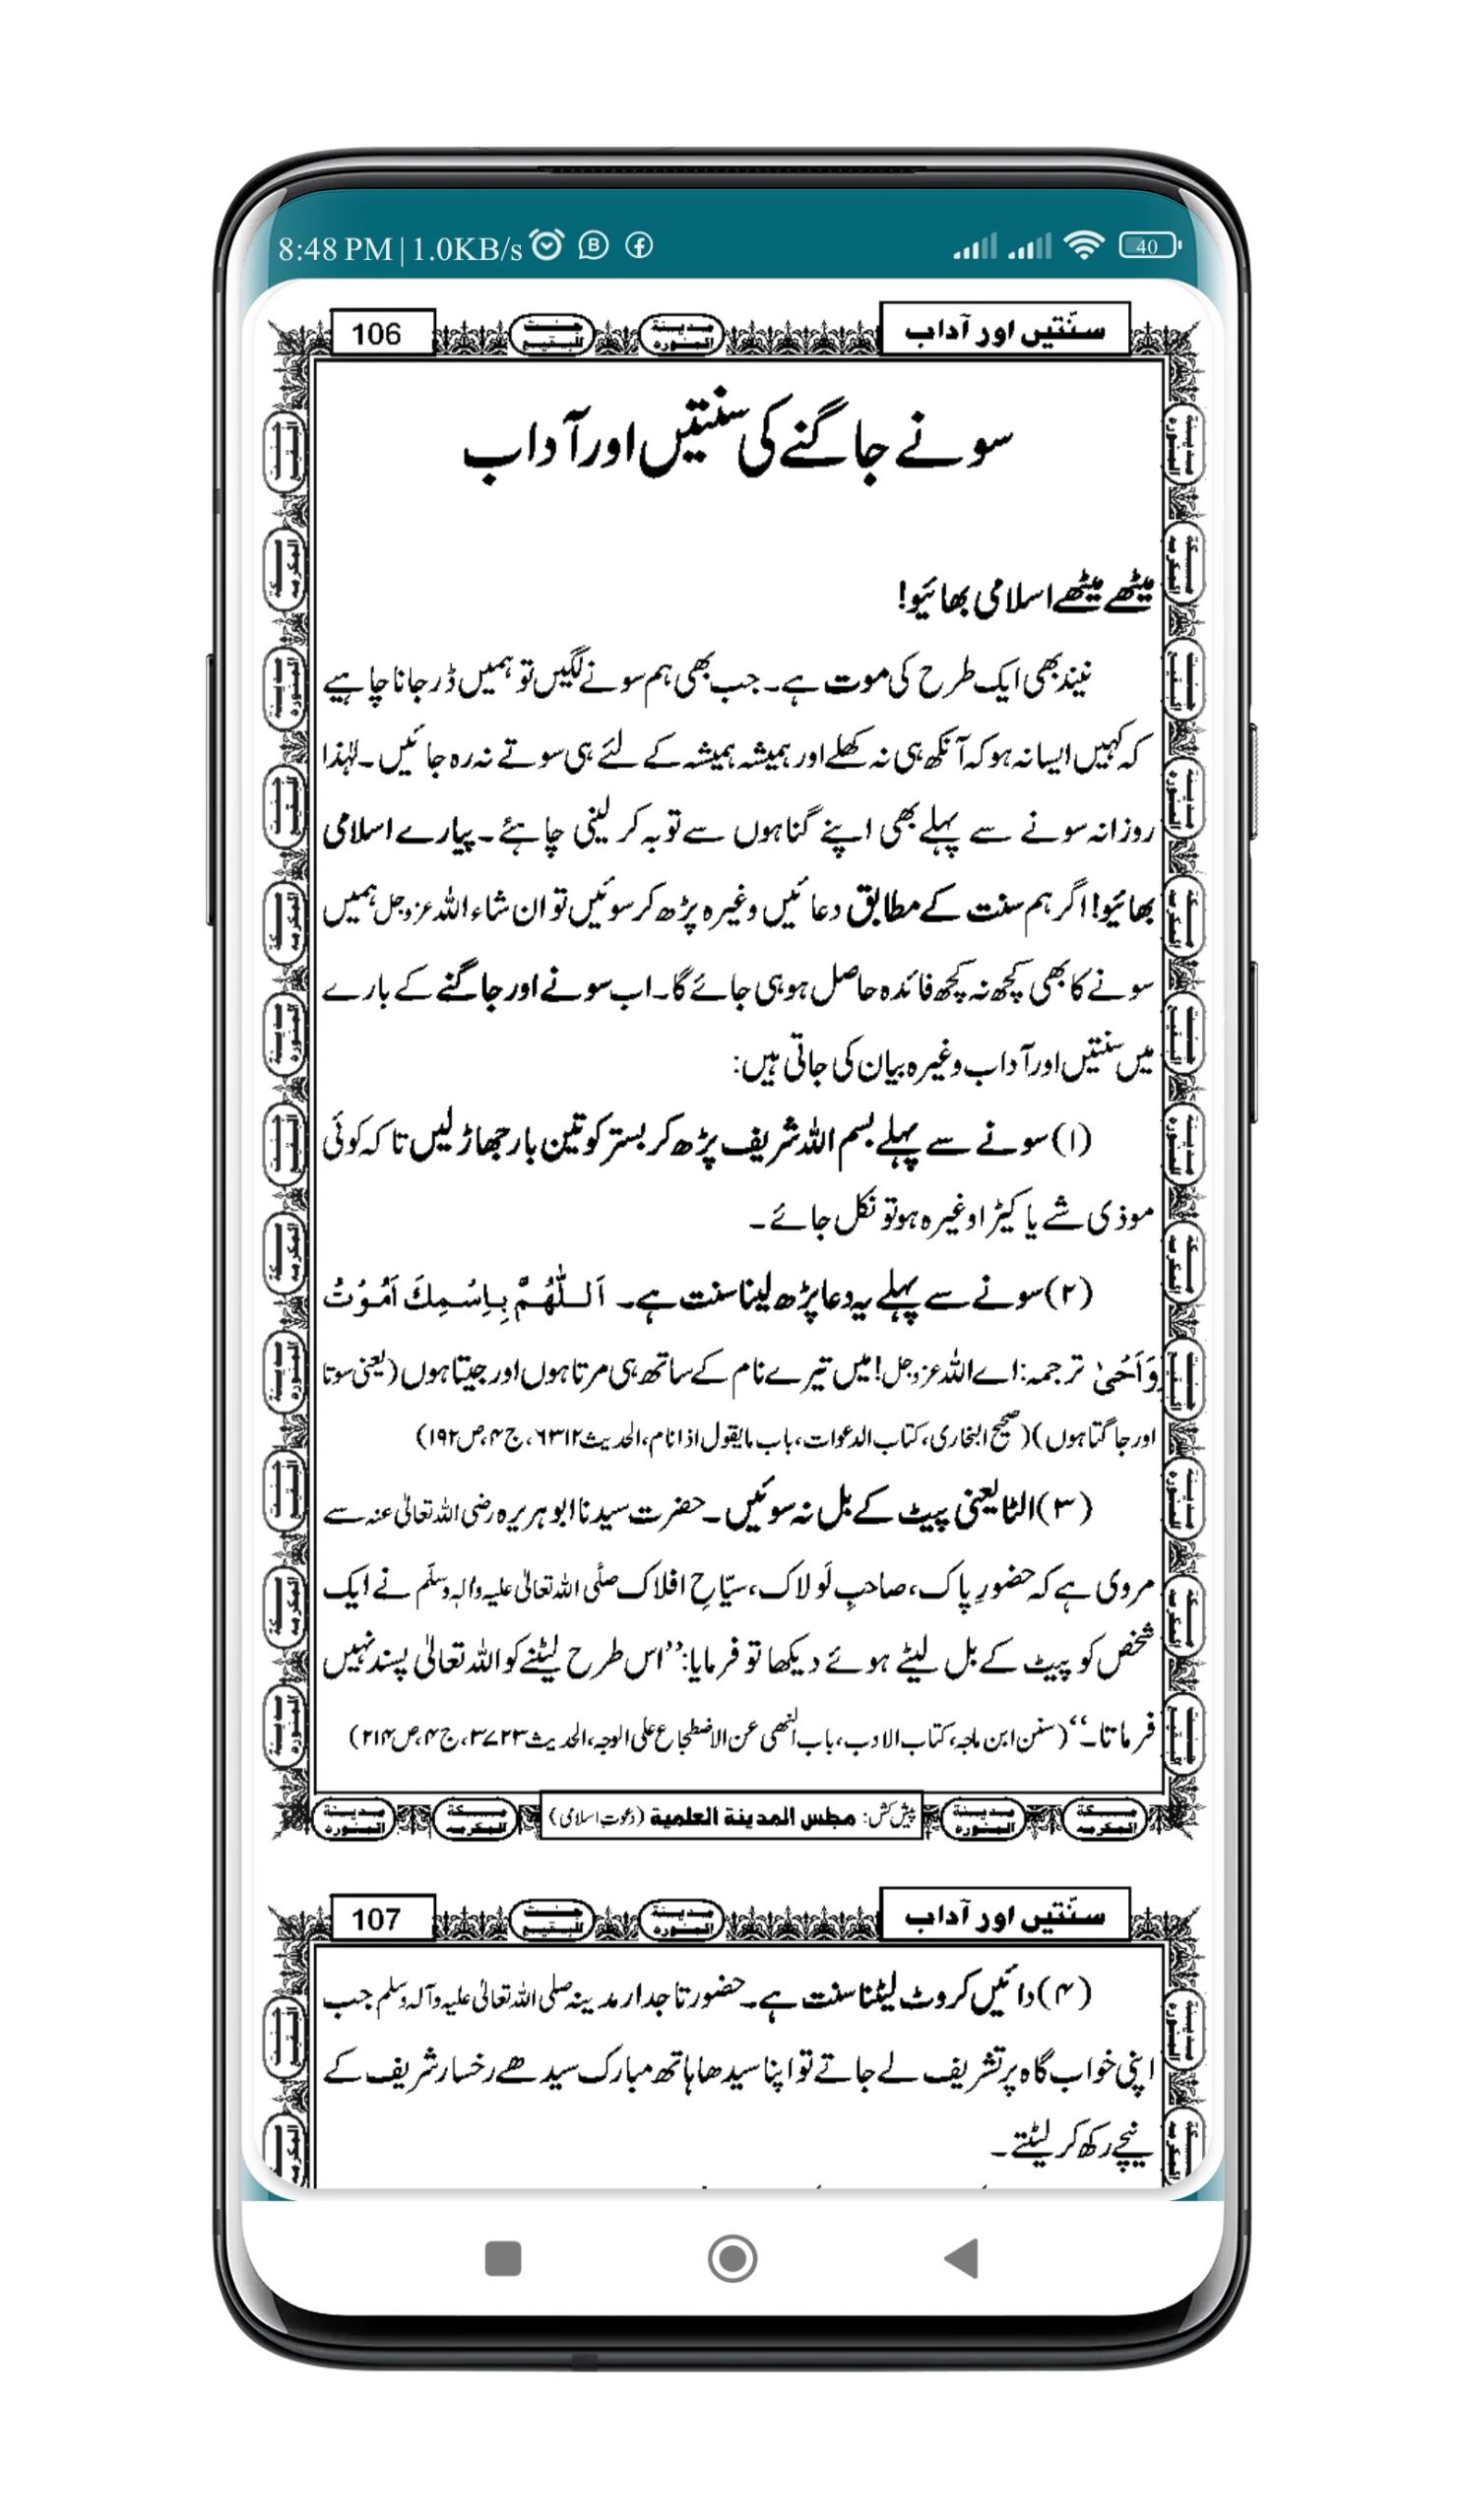 8:48 PM | 1.0KB/s
40
106
سنّتیں اور آداب
سونے جاگنے کی سنتیں اور آداب
میٹھے میٹھے اسلامی بھائیو!
نیند بھی ایک طرح کی موت ہے۔ جب بھی ہم سونے لگیں تو ہمیں ڈر جانا چاہیے
کہ کہیں ایسا نہ ہو کہ آنکھ ہی نہ کھلے اور ہمیشہ ہمیشہ کے لئے ہی سوتے نہ رہ جائیں۔ لہٰذا
روزانہ سونے سے پہلے بھی اپنے گناہوں سے توبہ کر لینی چاہئے۔ پیارے اسلامی
بھائیو! اگر ہم سنت کے مطابق دعائیں وغیرہ پڑھ کر سوئیں تو ان شاء اللہ عزوجل ہمیں
سونے کا بھی کچھ نہ کچھ فائدہ حاصل ہو ہی جائے گا۔ اب سونے اور جاگنے کے بارے
میں سنتیں اور آداب وغیرہ بیان کی جاتی ہیں:
(۱) سونے سے پہلے بسم اللہ شریف پڑھ کر بستر کو تین بار جھاڑ لیں تاکہ کوئی
موذی شے یا کیڑا وغیرہ ہو تو نکل جائے۔
(۲) سونے سے پہلے یہ دعا پڑھ لینا سنت ہے۔ اَللّٰهُمَّ بِاسْمِكَ اَمُوْتُ
وَاَحْیٰ ترجمہ: اے اللہ عزوجل! میں تیرے نام کے ساتھ ہی مرتا ہوں اور جیتا ہوں (یعنی سوتا
اور جاگتا ہوں) (صحیح البخاری، کتاب الدعوات، باب مایقول اذا نام، الحدیث ۶۳۱۲، ج۴، ص۱۹۲)
(۳) الٹا یعنی پیٹ کے بل نہ سوئیں۔ حضرت سیدنا ابو ہریرہ رضی اللہ تعالیٰ عنہ سے
مروی ہے کہ حضورِ پاک، صاحبِ لَولاک، سیّاحِ افلاک صلَّی اللہ تعالیٰ علیہ واٰلہٖ وسلّم نے ایک
شخص کو پیٹ کے بل لیٹے ہوئے دیکھا تو فرمایا: ’’اس طرح لیٹنے کو اللہ تعالیٰ پسند نہیں
فرماتا۔‘‘ (سنن ابن ماجہ، کتاب الادب، باب النھی عن الاضطجاع علی الوجہ، الحدیث ۳۷۲۳، ج۴، ص۲۱۴)
پیش کش: مجلس المدینة العلمیة (دعوت اسلامی)
107
سنّتیں اور آداب
(۴) دائیں کروٹ لیٹنا سنت ہے۔ حضور تاجدار مدینہ صلی اللہ تعالیٰ علیہ وآلہ وسلم جب
اپنی خواب گاہ پر تشریف لے جاتے تو اپنا سیدھا ہاتھ مبارک سیدھے رخسار شریف کے
نیچے رکھ کر لیٹتے۔